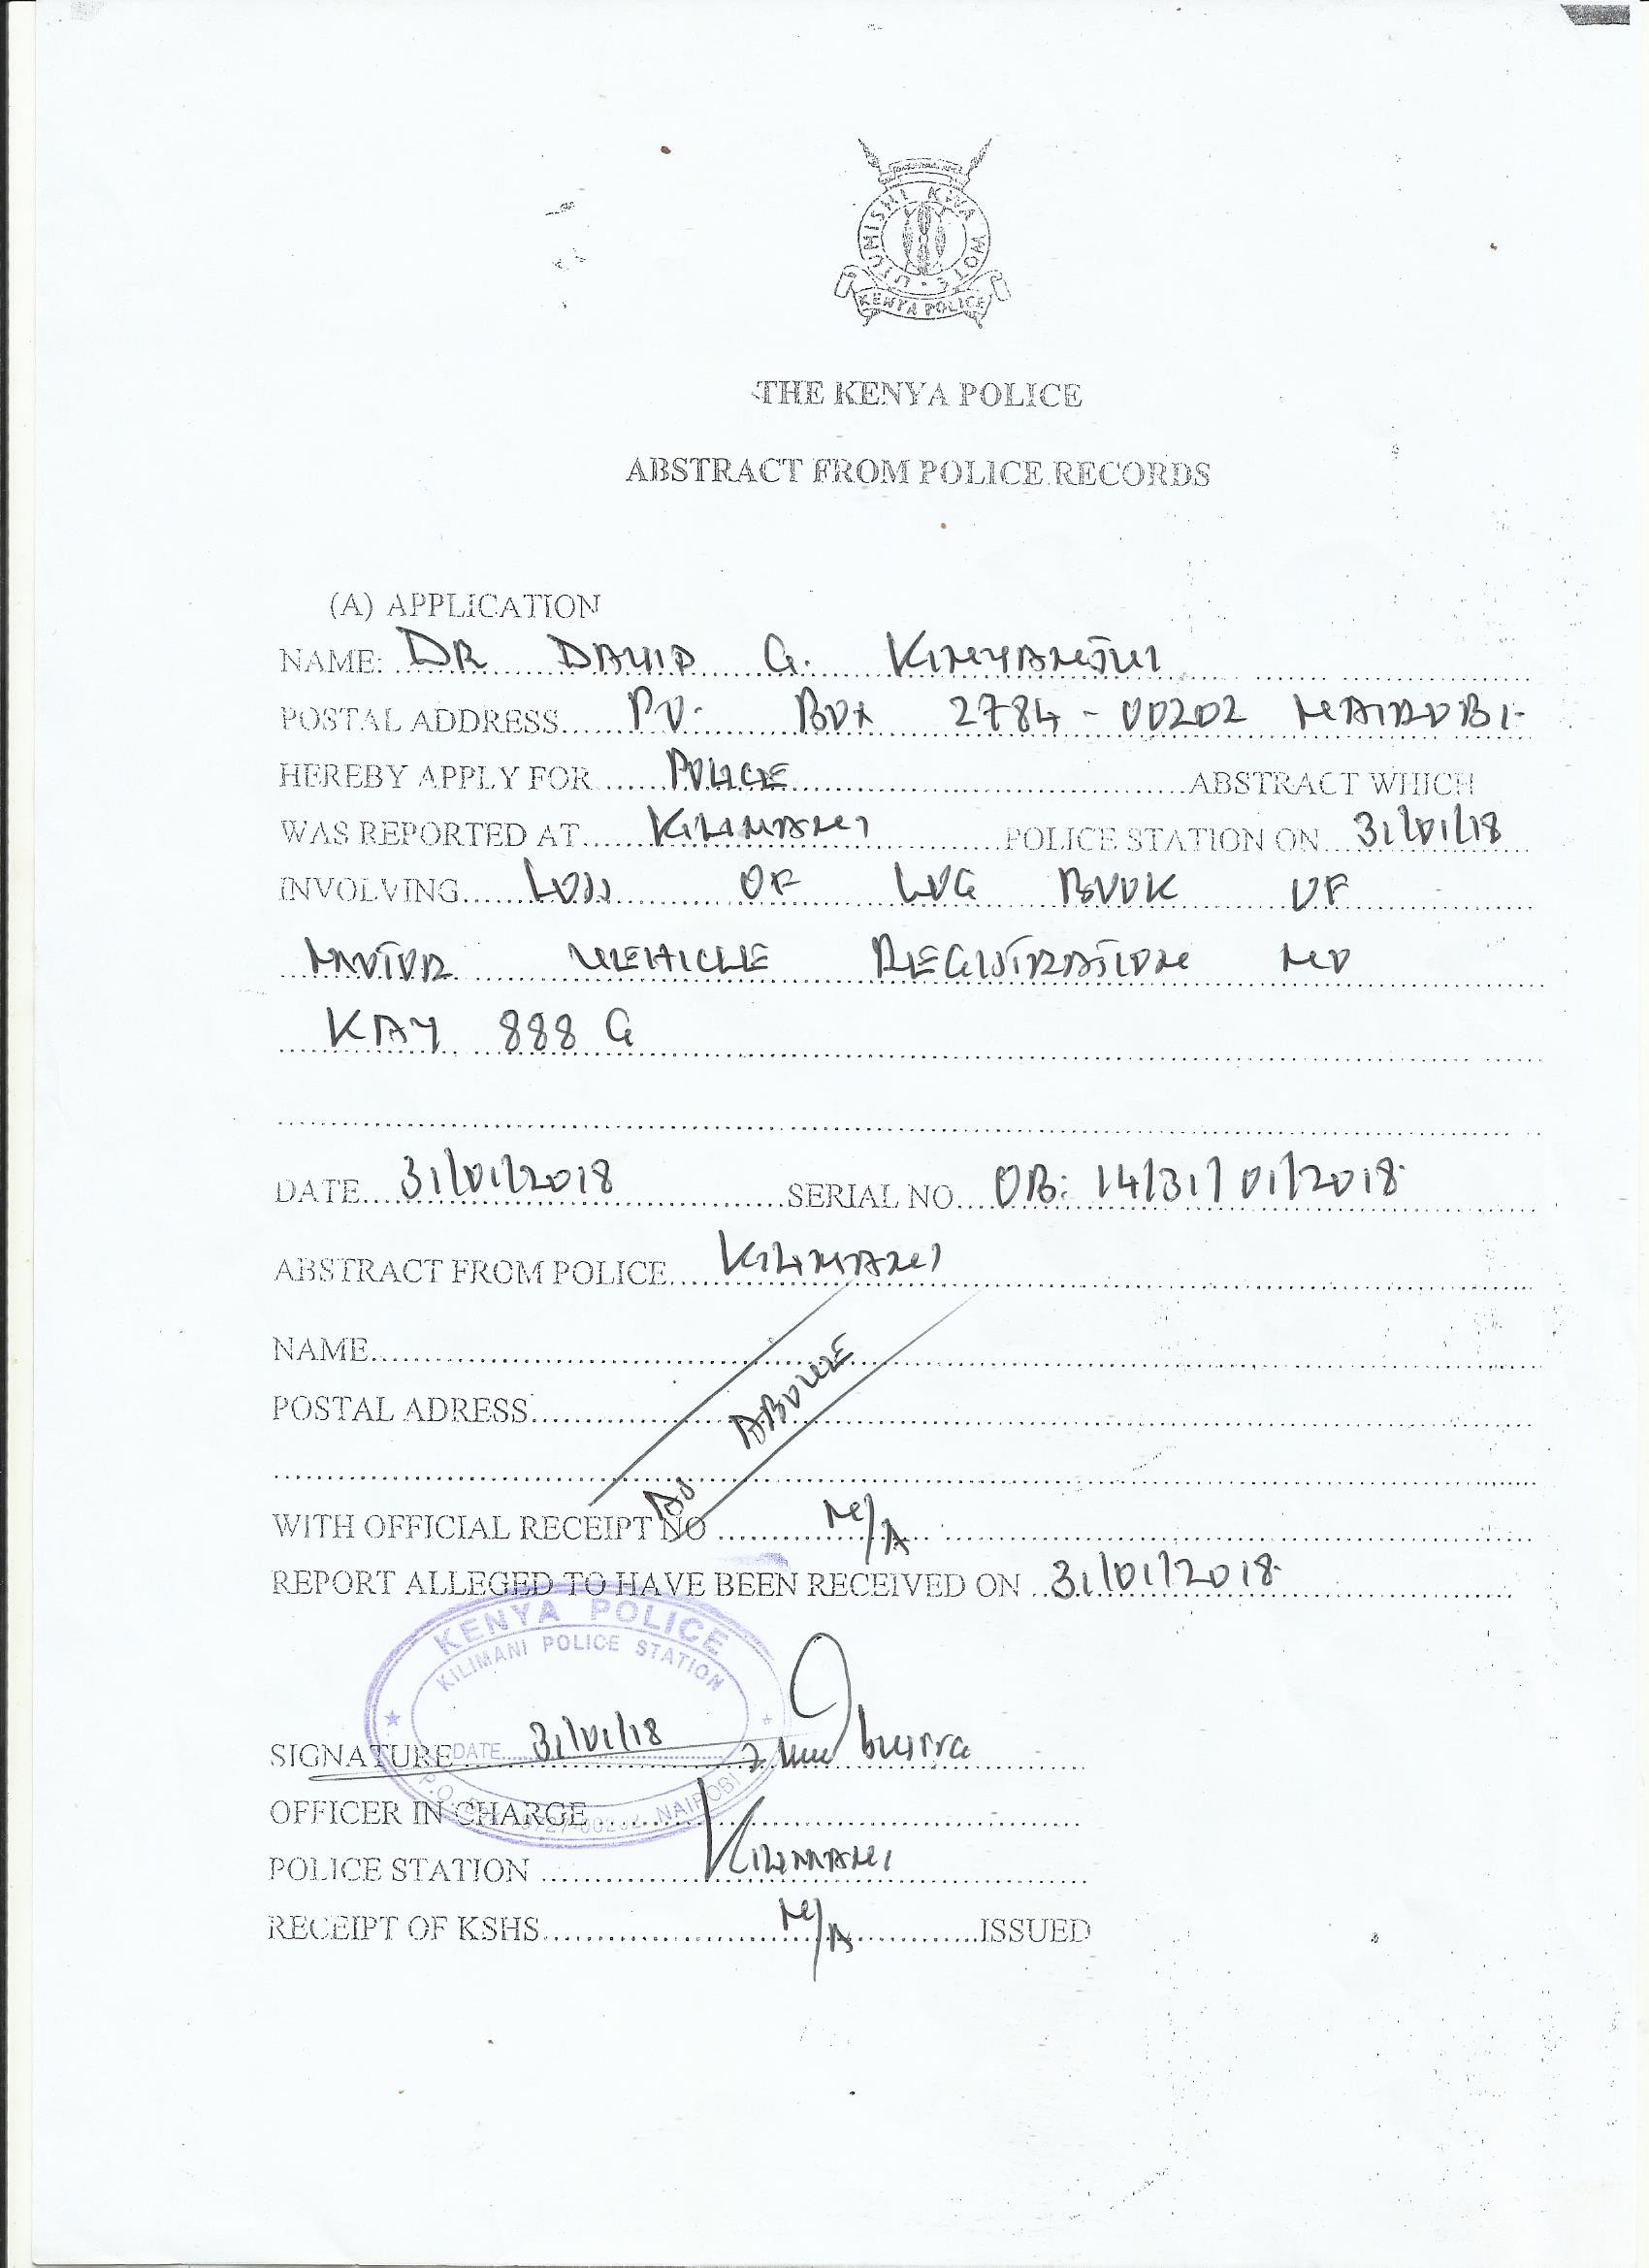 UTUMISHI KWA WOTE
KENYA POLICE
THE KENYA POLICE
ABSTRACT FROM POLICE RECORDS
(A) APPLICATION
NAME: DR DAVID G. KINYANJUI
POSTAL ADDRESS P.O. BOX 2784-00202 NAIROBI
HEREBY APPLY FOR POLICE ABSTRACT WHICH
WAS REPORTED AT KILIMANI POLICE STATION ON 31/01/18
INVOLVING LOSS OF LOG BOOK OF
MOTOR VEHICLE REGISTRATION NO
KAY 888 G
DATE 31/01/2018 SERIAL NO. OB: 14/31/01/2018
ABSTRACT FROM POLICE KILIMANI
NAME
POSTAL ADRESS
AS ABOVE
WITH OFFICIAL RECEIPT NO N/A
REPORT ALLEGED TO HAVE BEEN RECEIVED ON 31/01/2018
KENYA POLICE
KILIMANI POLICE STATION
SIGNATURE DATE 31/01/18
P.O. NAIROBI
OFFICER IN CHARGE
POLICE STATION KILIMANI
RECEIPT OF KSHS N/A ISSUED